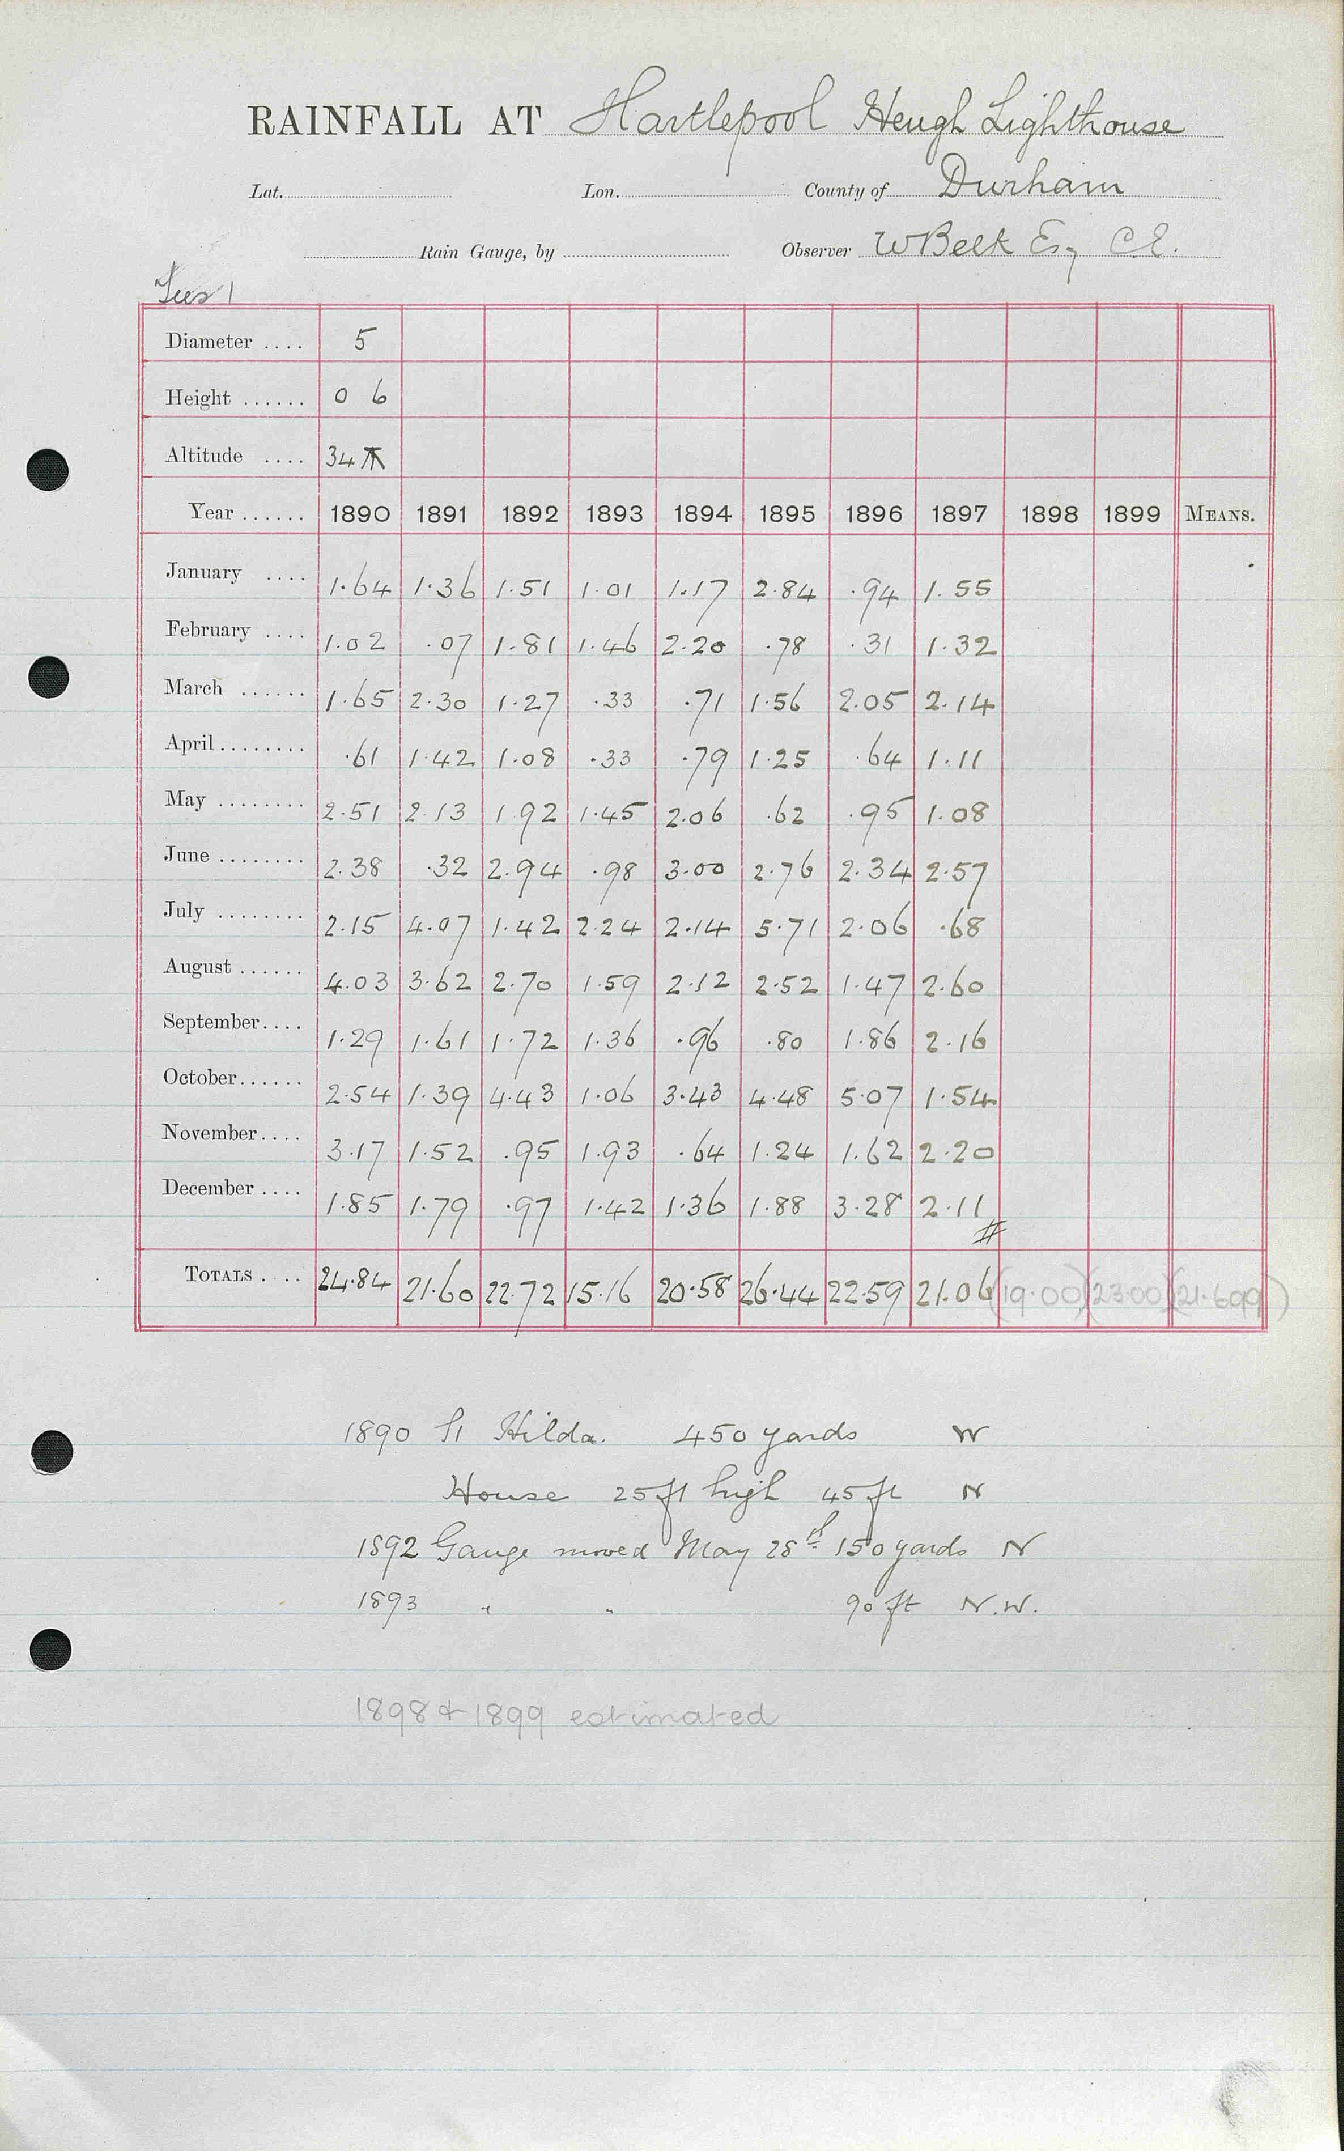 RAINFALL AT Hartlepool Heugh Lighthouse
Lat. Lon. County of Durham
Rain Gauge, by Observer W Belk Esq C.E.
Tees 1
Diameter .... 5
Height ...... 0 6
Altitude .... 34
Year ...... 1890 1891 1892 1893 1894 1895 1896 1897 1898 1899 MEANS.
January .... 1.64 1.36 1.51 1.01 1.17 2.84 .94 1.55
February .... 1.02 .07 1.81 1.46 2.20 .78 .31 1.32
March ...... 1.65 2.30 1.27 .33 .71 1.56 2.05 2.14
April ........ .61 1.42 1.08 .33 .79 1.25 .64 1.11
May ........ 2.51 2.13 1.92 1.45 2.06 .62 .95 1.08
June ........ 2.38 .32 2.94 .98 3.00 2.76 2.34 2.57
July ........ 2.15 4.07 1.42 2.24 2.14 5.71 2.06 .68
August ...... 4.03 3.62 2.70 1.59 2.12 2.52 1.47 2.60
September.... 1.29 1.61 1.72 1.36 .96 .80 1.86 2.16
October...... 2.54 1.39 4.43 1.06 3.43 4.48 5.07 1.54
November.... 3.17 1.52 .95 1.93 .64 1.24 1.62 2.20
December .... 1.85 1.79 .97 1.42 1.36 1.88 3.28 2.11
#
TOTALS .... 24.84 21.60 22.72 15.16 20.58 26.44 22.59 21.06 (19.00) (23.00) (21.699)
1890 St Hilda. 450 yards W
House 25 ft high 45 ft N
1892 Gauge moved May 28th 150 yards N
1893 " " 90 ft N.W.
1898 & 1899 estimated